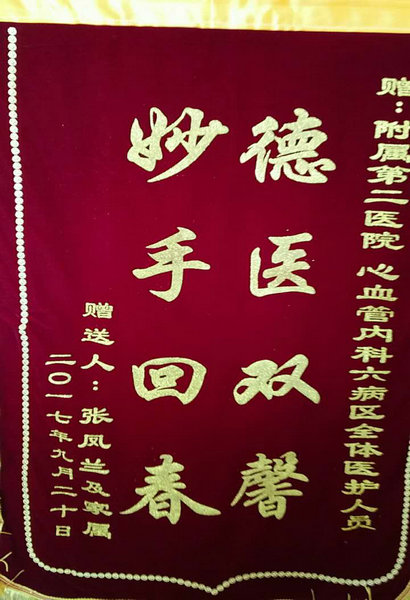 赠：附属第二医院 心血管内科六病区全体医护人员
德医双馨
妙手回春
赠送人：张凤兰及家属
二〇一七年九月二十日